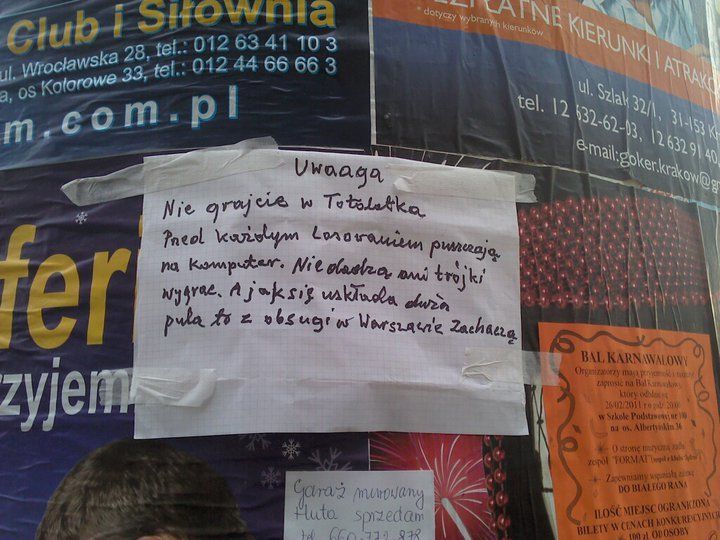 Club i Siłownia
ul. Wrocławska 28, tel.: 012 63 41 10 3
a, os Kolorowe 33, tel.: 012 44 66 66 3
m.com.pl
PŁATNE KIERUNKI I ATRAKC
* dotyczy wybranych kierunkow
ul. Szlak 32/1, 31-153 K
tel. 12 632-62-03, 12 632 91 40
e-mail:goker.krakow@g
Uwaaga
Nie grajcie w Totolotka
Pned każdym Losowaniem puszczają
na komputer. Nie dadzą ani trójki
wygrac. A jak się uskłada duża
pula to z obsugi w Warszawie Zachaczą
feri
zyjem
BAL KARNAWAŁOWY
Organizatorzy mają przyjemność i zaszczyt
zaprosić na Bal Karnawałowy
który odbędzie
26/02/2011 r o godz 20.00
w Szkole Podstawowej nr 100
na os. Albertyńskim 36
O stronę muzyczną zadba
zespół "FORMAT"
Zapewniamy wspaniałą zabawę
DO BIAŁEGO RANA
ILOŚĆ MIEJSC OGRANICZONA
BILETY W CENACH KONKURENCYJNYCH
100 zł OD OSOBY
Garaż murowany
Huta sprzedam
tel. 660 772 878